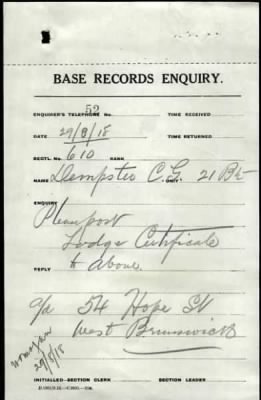 BASE RECORDS ENQUIRY.
ENQUIRER'S TELEPHONE NO. 52 TIME RECEIVED
DATE 29/8/18 TIME RETURNED
REGTL. NO. 610 RANK
NAME Dempster C.G. UNIT 21 Bn
ENQUIRY
Please post
Lodge Certificate
REPLY to above.
c/o 54 Hope St
West Brunswick
29/8/18
INITIALLED—SECTION CLERK SECTION LEADER